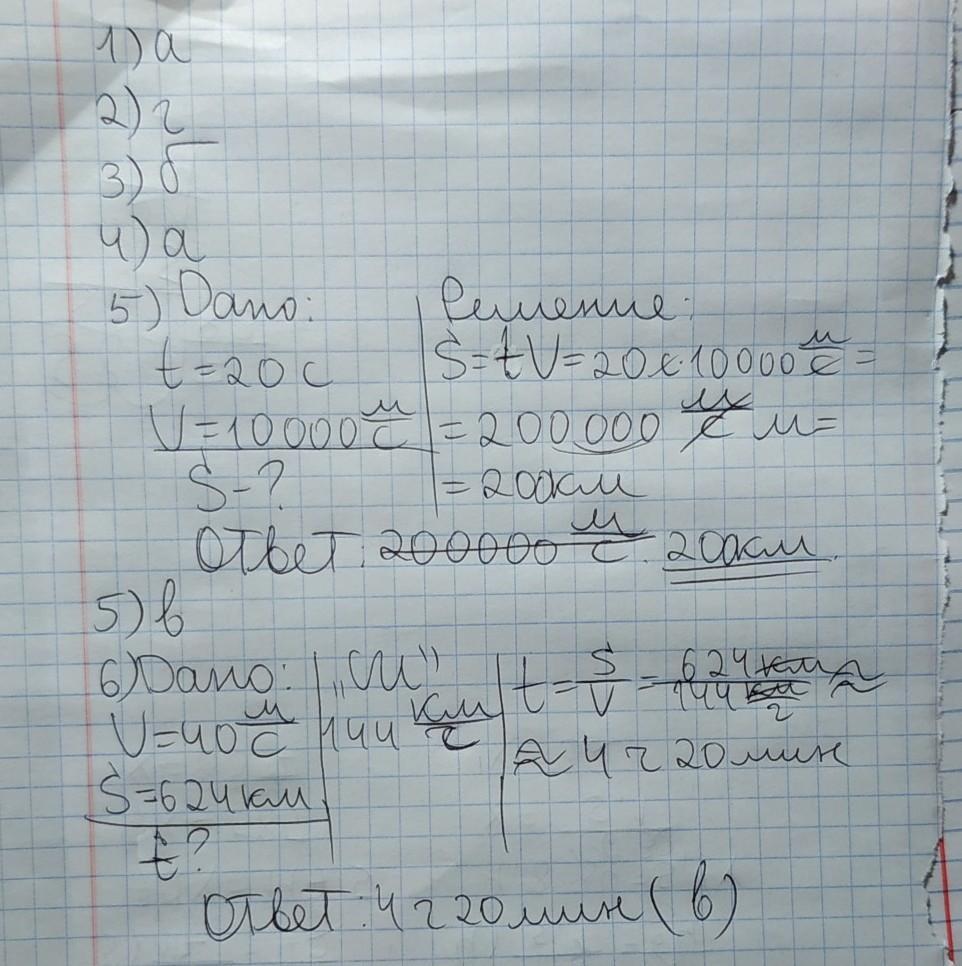 1) а
2) г
3) б
4) а
5) Дано:
t = 20 с
V = 10000 м/с
S - ?
Решение:
S = tV = 20 с · 10000 м/с =
= 200000 м/с м =
= 200км
Ответ: 200000 м/с. 200км.
5) в
6) Дано:
V = 40 м/с
S = 624 км
t ?
„СИ"
144 км/г
t = S/V = 624 км / 144 км/г ≈
≈ 4 г 20 мин
Ответ: 4 г 20 мин (в)